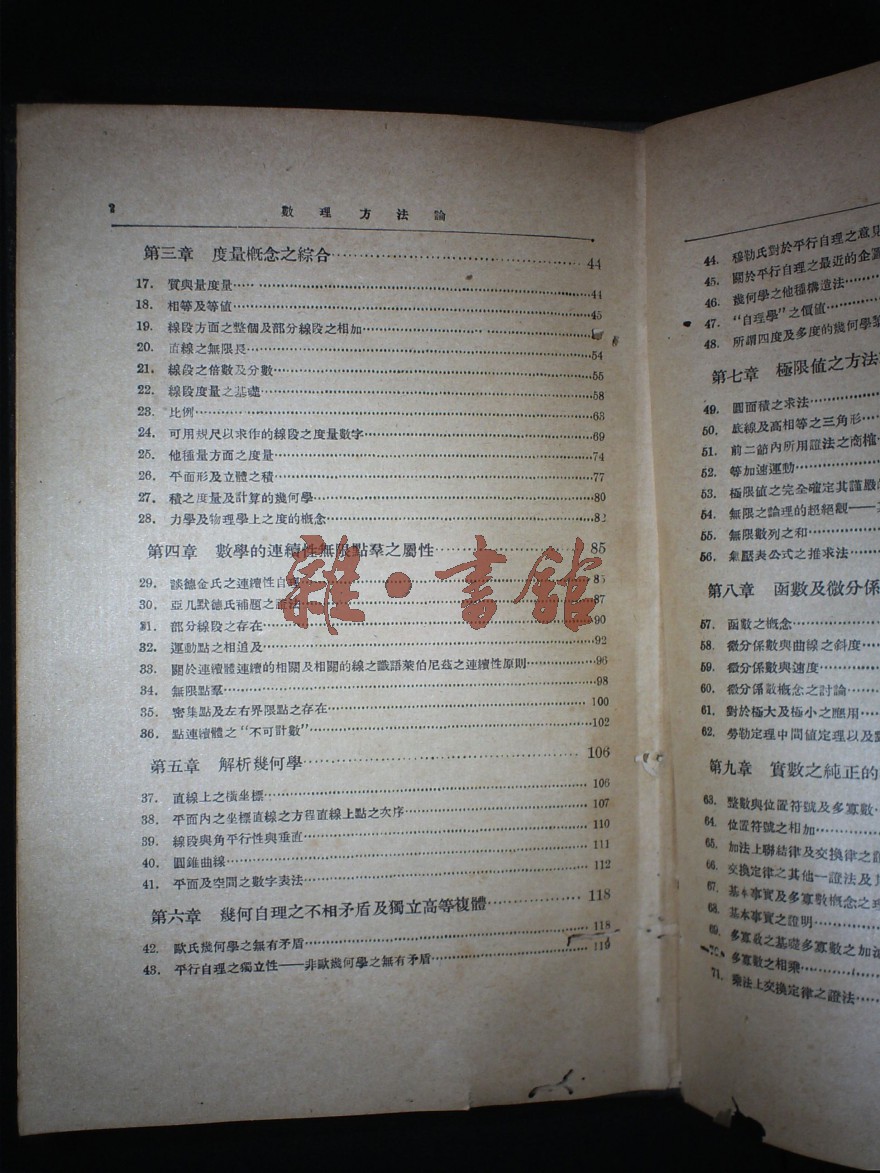 2 數理方法論
第三章 度量概念之綜合 44
17. 質與量度量 44
18. 相等及等値 45
19. 線段方面之整個及部分線段之相加
20. 直線之無限長 54
21. 線段之倍數及分數 55
22. 線段度量之基礎 58
23. 比例 63
24. 可用規尺以求作的線段之度量數字 69
25. 他種量方面之度量 74
26. 平面形及立體之積 77
27. 積之度量及計算的幾何學 80
28. 力學及物理學上之度的概念 82
第四章 數學的連續性無限點羣之屬性 85
29. 談德金氏之連續性自理 85
30. 亞几默德氏補題之證法 87
31. 部分線段之存在 90
32. 運動點之相追及 92
33. 關於連續體連續的相關及相關的線之識語萊伯尼兹之連續性原則 96
34. 無限點羣 98
35. 密集點及左右界限點之存在 100
36. 點連續體之“不可計數” 102
第五章 解析幾何學 106
37. 直線上之橫坐標 106
38. 平面內之坐標直線之方程直線上點之次序 107
39. 線段與角平行性與垂直 110
40. 圓錐曲線 111
41. 平面及空間之數字表法 112
第六章 幾何自理之不相矛盾及獨立高等複體 118
42. 歐氏幾何學之無有矛盾 118
43. 平行自理之獨立性——非歐幾何學之無有矛盾 119
44. 穆勒氏對於平行自理之意見
45. 關於平行自理之最近的企圖
46. 幾何學之他種構造法
47. “自理學”之價値
48. 所謂四度及多度的幾何學
第七章 極限値之方法
49. 圓面積之求法
50. 底線及高相等之三角形
51. 前二節內所用證法之商榷
52. 等加速運動
53. 極限値之完全確定其謹嚴的
54. 無限之論理的超絕觀——
55. 無限數列之和
56. 氣壓表公式之推求法
第八章 函數及微分係
57. 函數之概念
58. 微分係數與曲線之斜度
59. 微分係數與速度
60. 微分係數概念之討論
61. 對於極大及極小之應用
62. 勞勒定理中間値定理以及
第九章 實數之純正的
63. 整數與位置符號及多寡數
64. 位置符號之相加
65. 加法上聯結律及交換律之
66. 交換定律之其他一證法及
67. 基本事實及多寡數概念之
68. 基本事實之證明
69. 多寡數之基礎多寡數之加
多寡數之相乘
71. 乘法上交換定律之證法
雜·書館